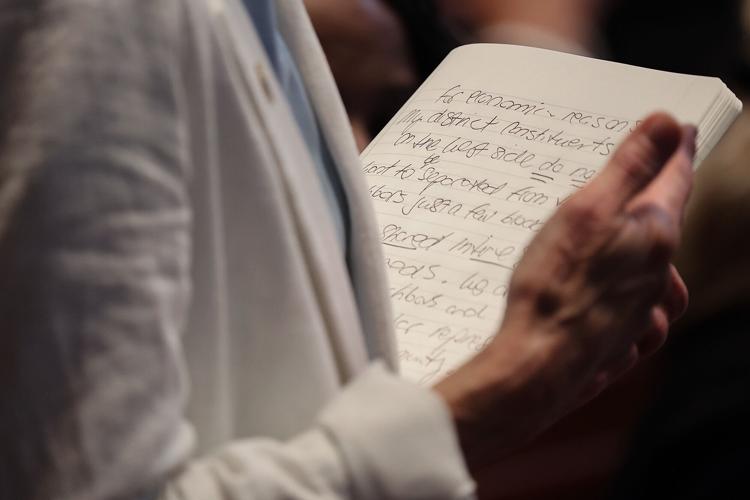 for economic reasons
My district constituents
on the West side do no
be
want to separated from
bors just a few blocks
shared in the
oods. We
hbors and